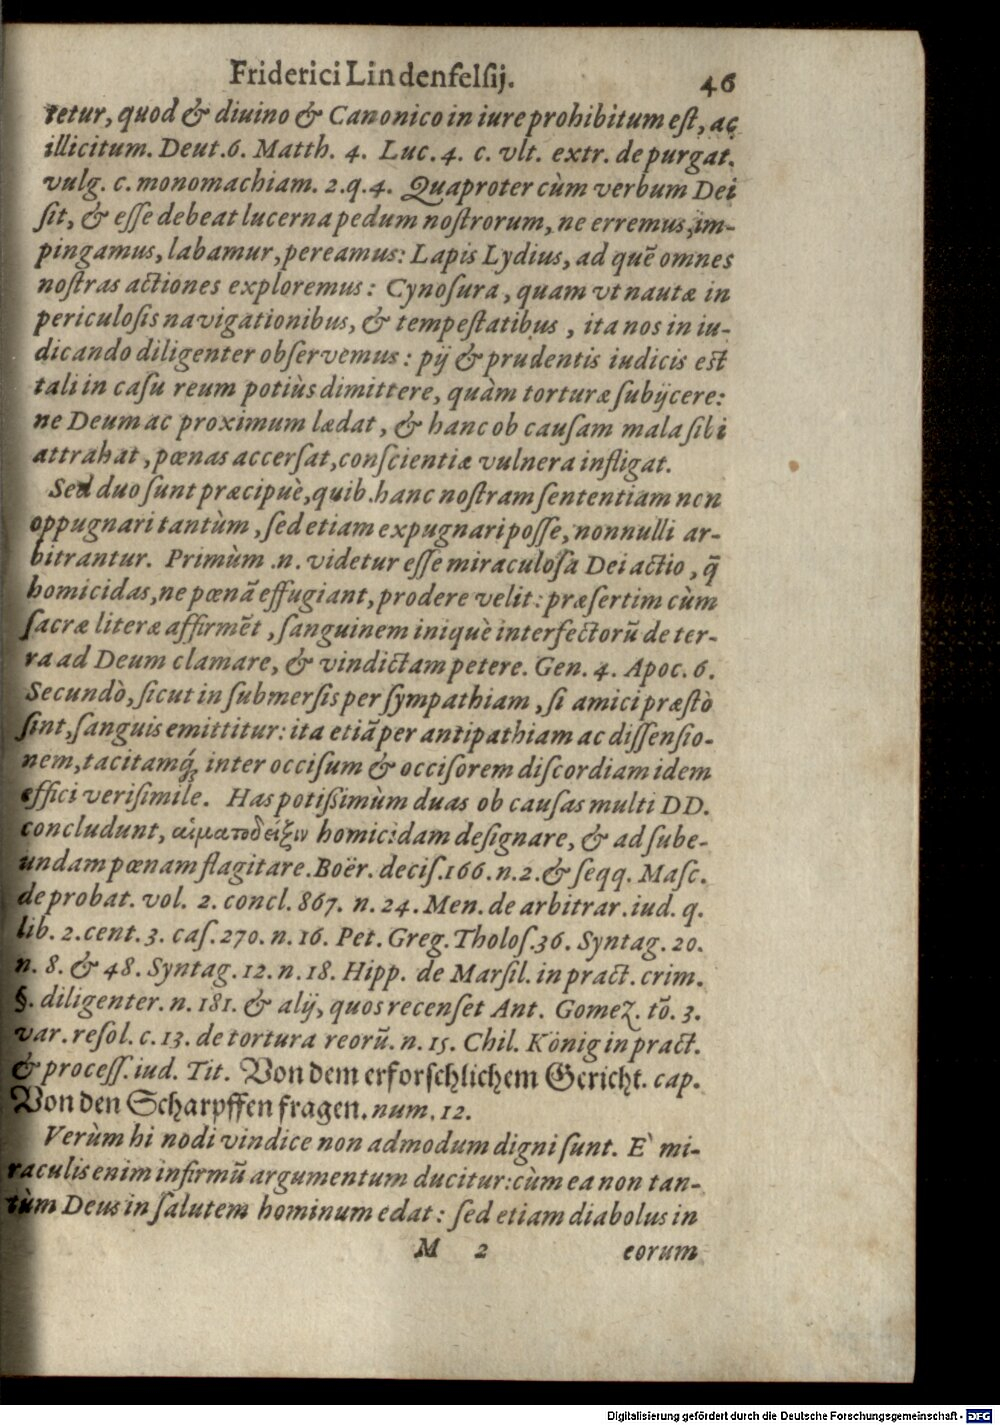 Friderici Lindenfelsij. 46
tetur, quod & diuino & Canonico in iure prohibitum eſt, ac
illicitum. Deut.6. Matth. 4. Luc. 4. c. vlt. extr. de purgat.
vulg. c. monomachiam. 2.q.4. Quapropter cùm verbum Dei
ſit, & eſſe debeat lucerna pedum noſtrorum, ne erremus, im-
pingamus, labamur, pereamus: Lapis Lydius, ad quē omnes
noſtras actiones exploremus: Cynoſura, quam vt nautæ in
periculoſis navigationibus, & tempeſtatibus, ita nos in iu-
dicando diligenter obſervemus: pij & prudentis iudicis eſt
tali in caſu reum potiùs dimittere, quàm torturæ ſubijcere:
ne Deum ac proximum lædat, & hanc ob cauſam mala ſibi
attrahat, pœnas accerſat, conſcientiæ vulnera infligat.
Sed duo ſunt præcipuè, quib. hanc noſtram ſententiam non
oppugnari tantùm, ſed etiam expugnari poſſe, nonnulli ar-
bitrantur. Primùm .n. videtur eſſe miraculoſa Dei actio, q̄
homicidas, ne pœnā effugiant, prodere velit: præſertim cùm
ſacræ literæ affirmēt, ſanguinem iniquè interfectorū de ter-
ra ad Deum clamare, & vindictam petere. Gen. 4. Apoc. 6.
Secundò, ſicut in ſubmerſis per ſympathiam, ſi amici præſtò
ſint, ſanguis emittitur: ita etiā per antipathiam ac diſſenſio-
nem, tacitamq́ꝫ inter occiſum & occiſorem diſcordiam idem
effici veriſimile. Has potiſsimùm duas ob cauſas multi DD.
concludunt, αἱματοδείξιν homicidam deſignare, & ad ſube-
undam pœnam flagitare. Boër. deciſ.166. n.2. & ſeqq. Maſc.
de probat. vol. 2. concl. 867. n. 24. Men. de arbitrar. iud. q.
lib. 2. cent. 3. caſ. 270. n. 16. Pet. Greg. Tholoſ. 36. Syntag. 20.
n. 8. & 48. Syntag. 12. n. 18. Hipp. de Marſil. in pract. crim.
§. diligenter. n. 181. & alij, quos recenſet Ant. Gomez. tō. 3.
var. reſol. c. 13. de tortura reorū. n. 15. Chil. König in pract.
& proceſſ. iud. Tit. Von dem erforſchlichem Gericht. cap.
Von den Scharpffen fragen. num. 12.
Verùm hi nodi vindice non admodum digni ſunt. E` mi-
raculis enim infirmū argumentum ducitur: cùm ea non tan-
tùm Deus in ſalutem hominum edat: ſed etiam diabolus in
M 2 eorum
Digitalisierung gefördert durch die Deutsche Forschungsgemeinschaft - DFG